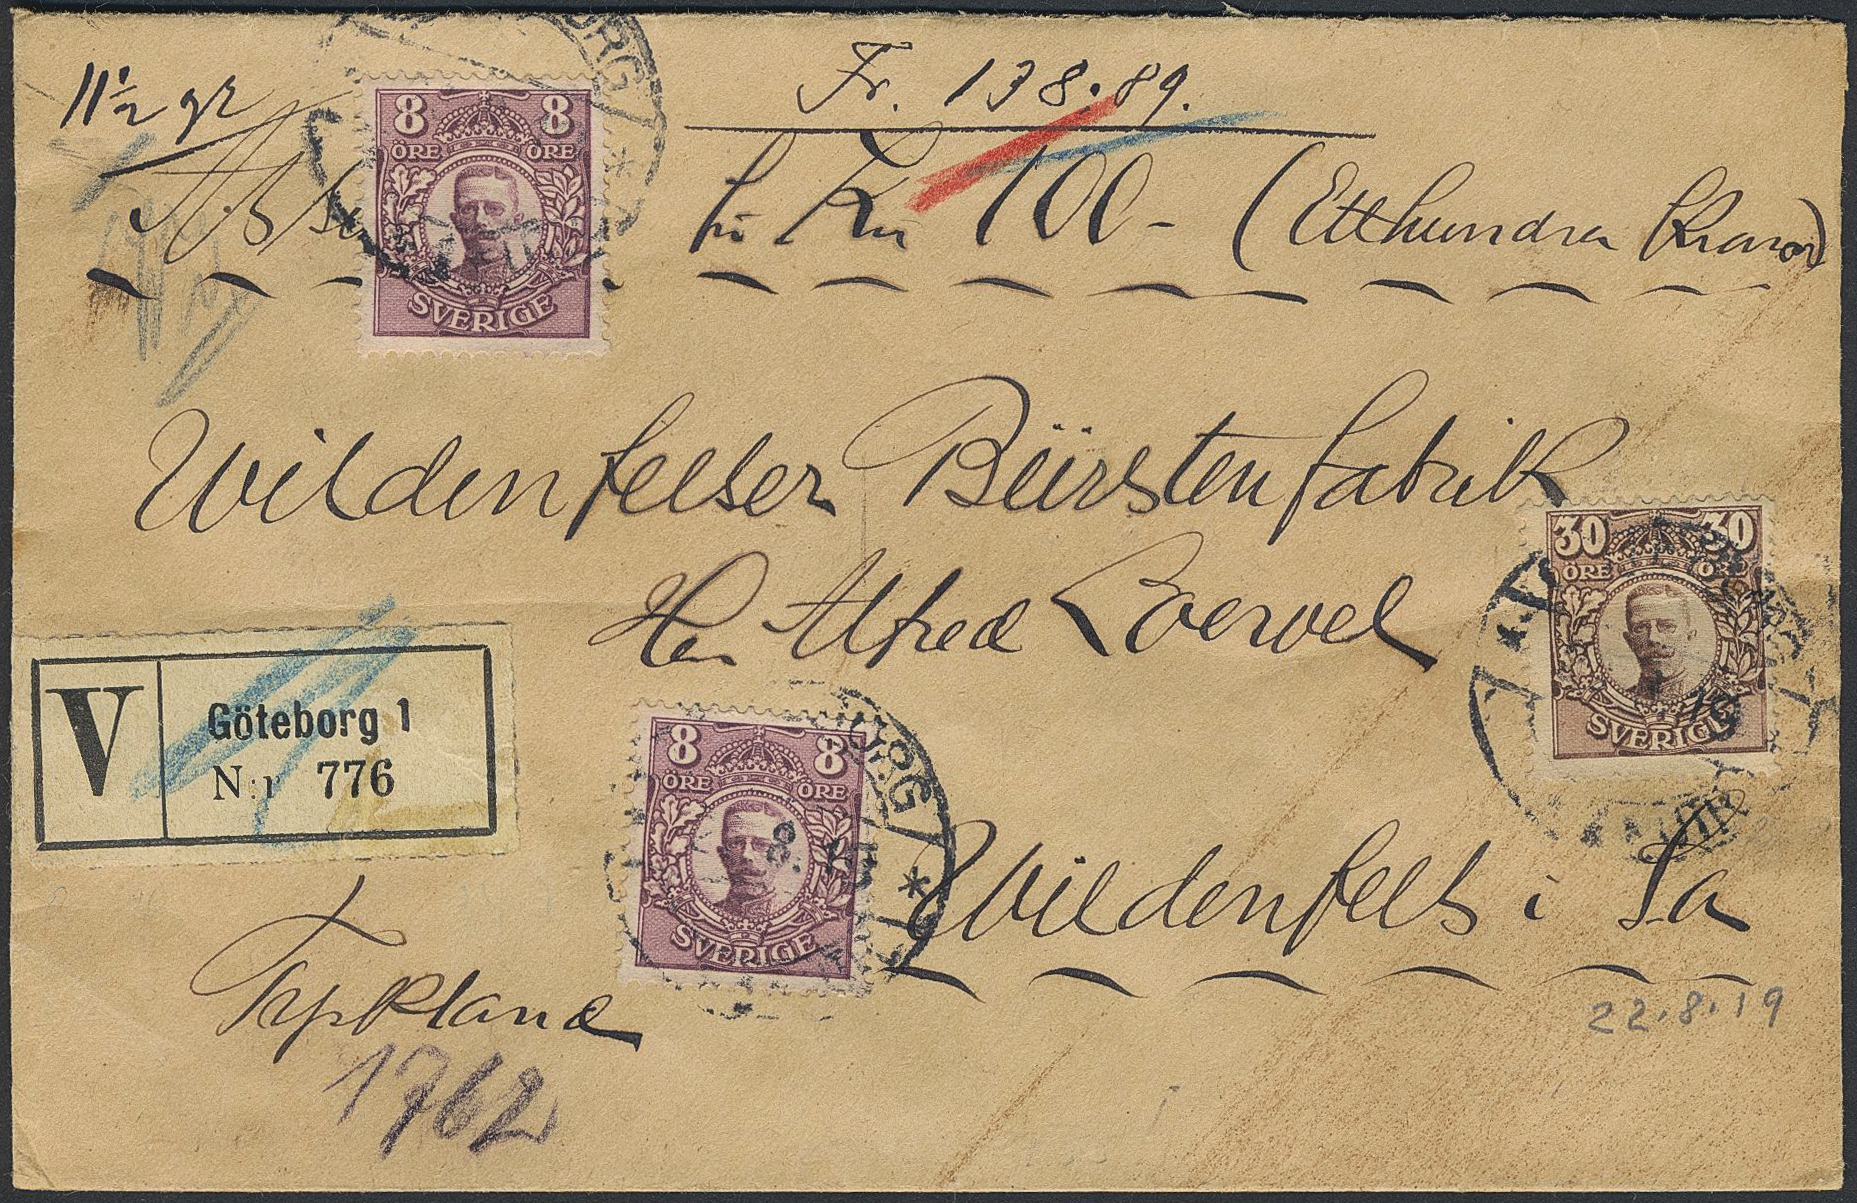 11½ gr
Fr. 138.89.
för Kr 100- (Etthundra Kronor)
8 8
ÖRE ÖRE
SVERIGE
Wildenfelser Bürstenfabrik
Herr Alfred Loewel
30 30
ÖRE ÖRE
SVERIGE
V Göteborg 1
N:r 776
8 8
ÖRE ÖRE
SVERIGE
ORG
Wildenfels i Sa
Tyskland
22.8.19
1762